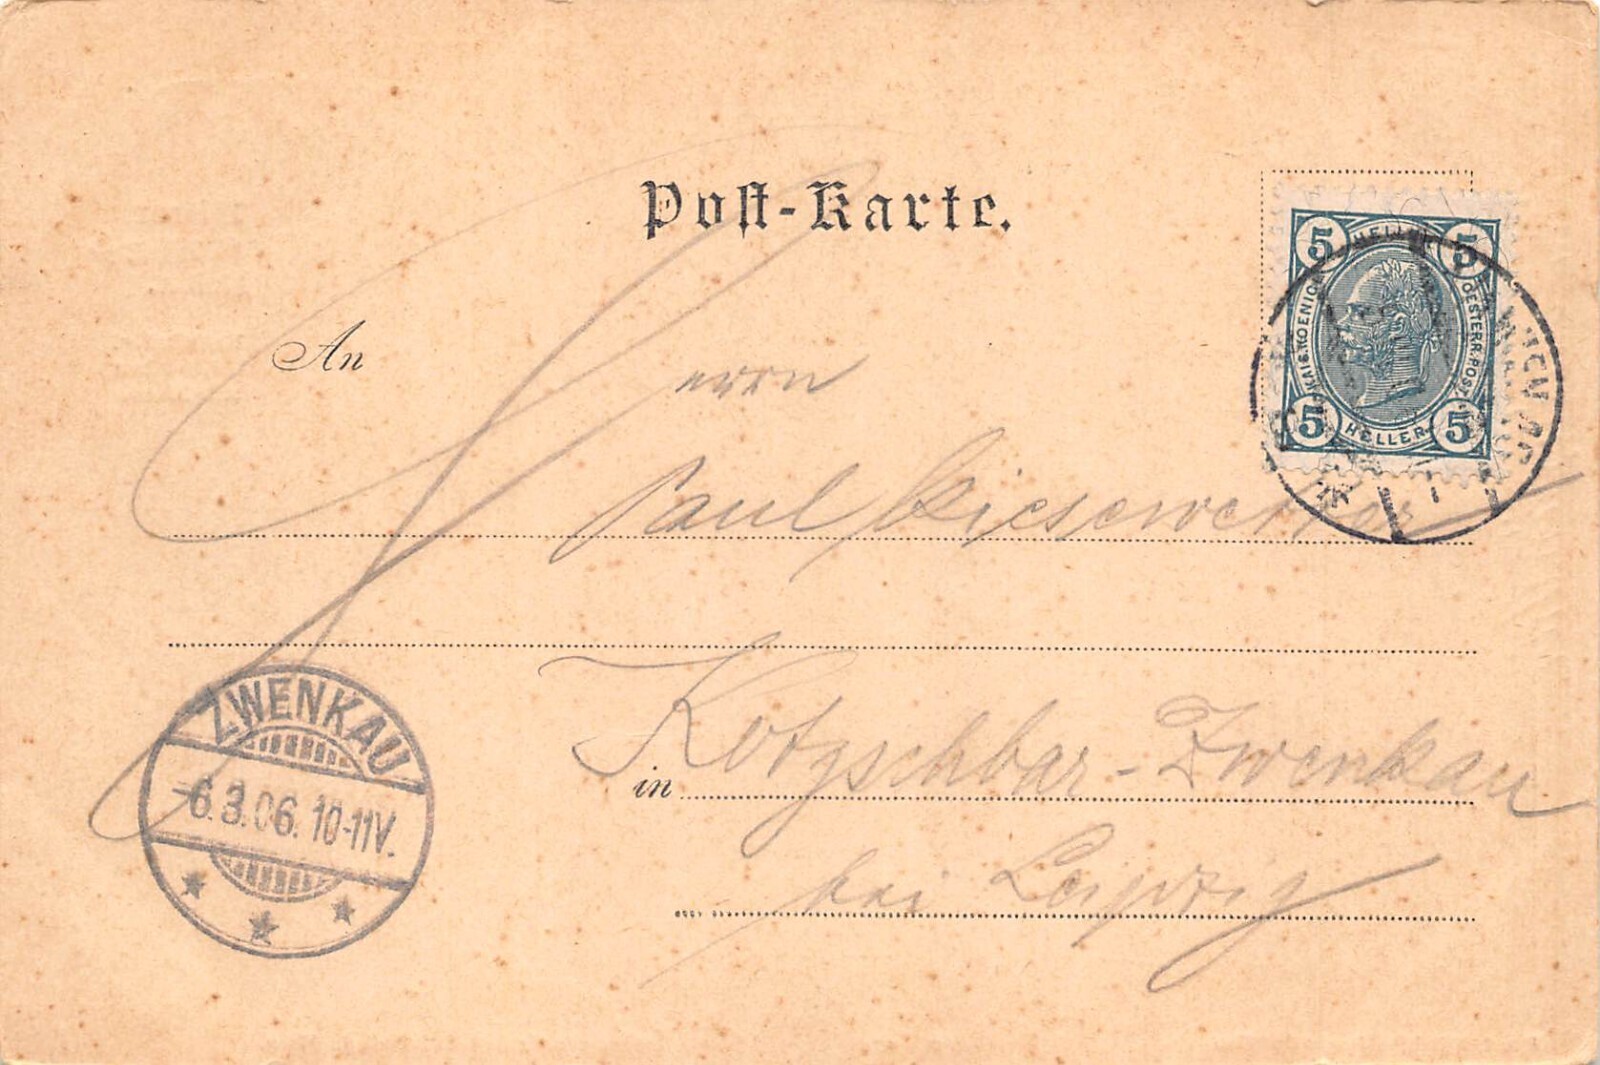 Post-Karte.
5 HELLER 5
KAIS. KOENIGL. OESTERR. POST
5 HELLER 5
An
Herrn
Paul Kiesewetter
in Kotzschbar-Zwenkau
bei Leipzig
ZWENKAU
-6.3.06. 10-11V.